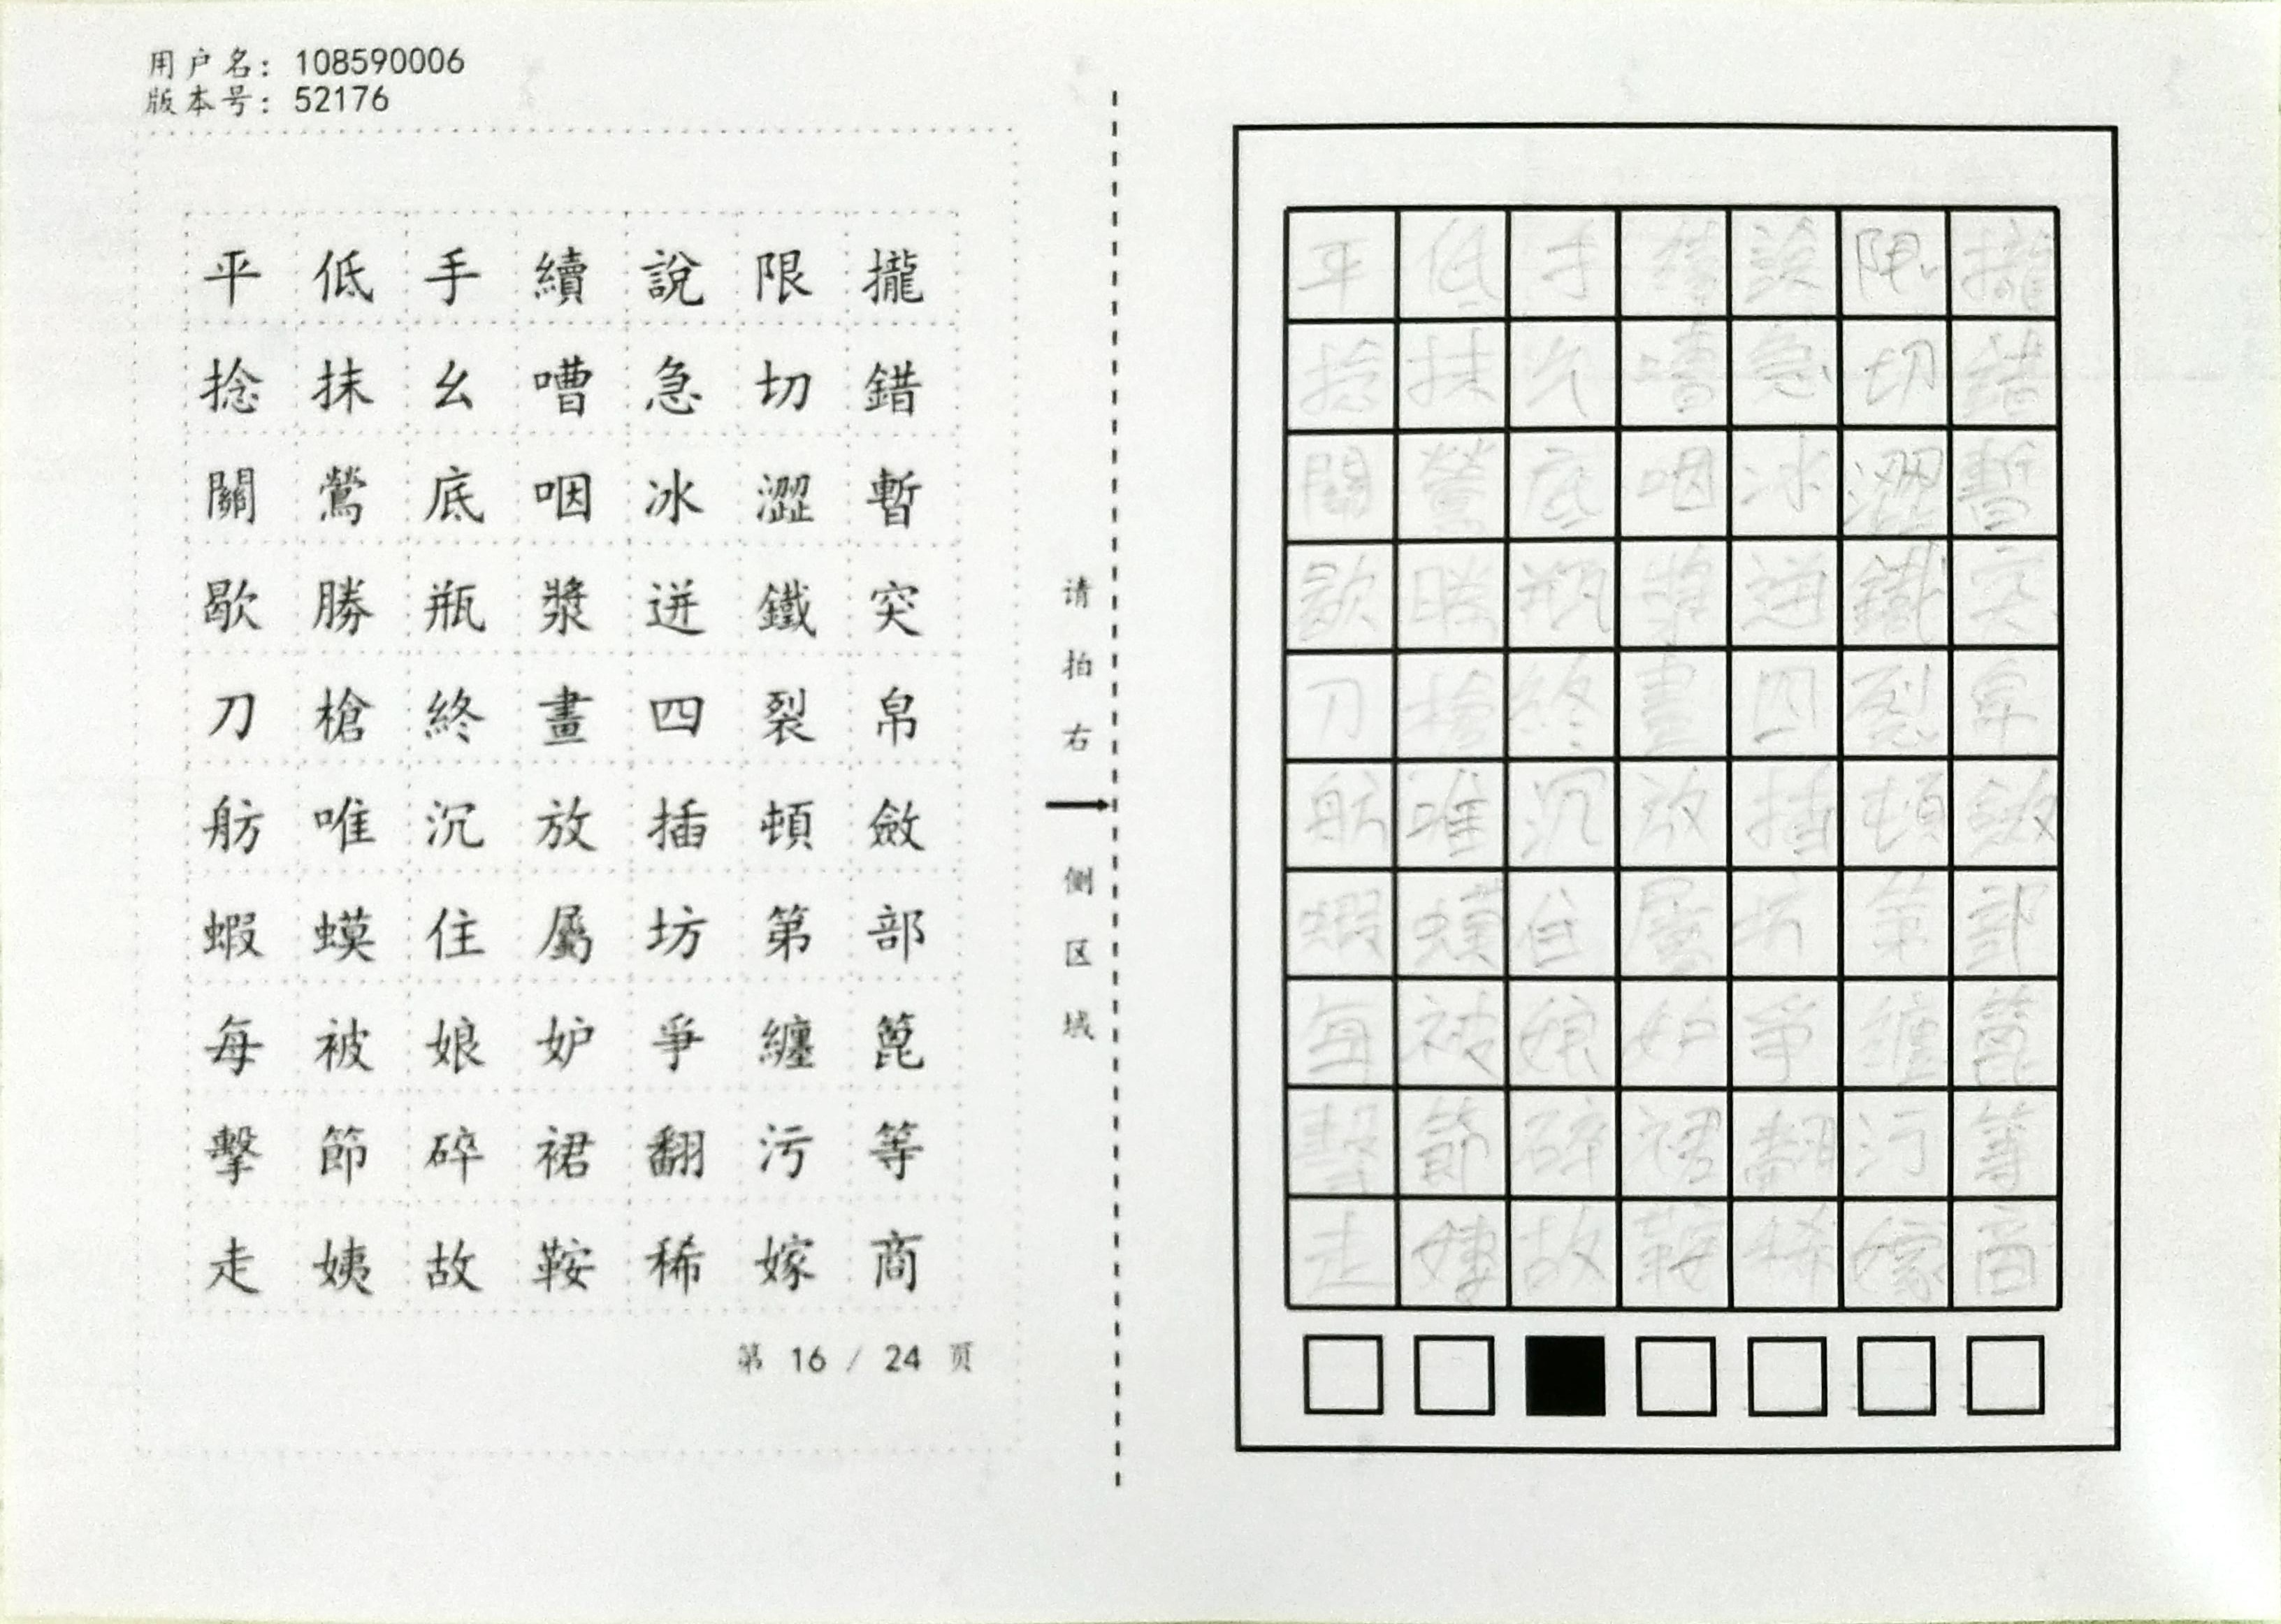 用户名: 108590006
版本号: 52176
平低手續說限攏
捻抹幺嘈急切錯
關鶯底咽冰澀暫
歇勝瓶漿迸鐵突
刀槍終畫四裂帛
舫唯沉放插頓斂
蝦蟆住屬坊第部
每被娘妒爭纏篦
擊節碎裙翻污等
走姨故鞍稀嫁商
第 16 / 24 页
请拍右
侧区域
平低手續說限攏
捻抹幺嘈急切錯
關鶯底咽冰澀暫
歇勝瓶漿迸鐵突
刀槍終畫四裂帛
舫唯沉放插頓斂
蝦蟆住屬坊第部
每被娘妒爭纏篦
擊節碎裙翻污等
走姨故鞍稀嫁商